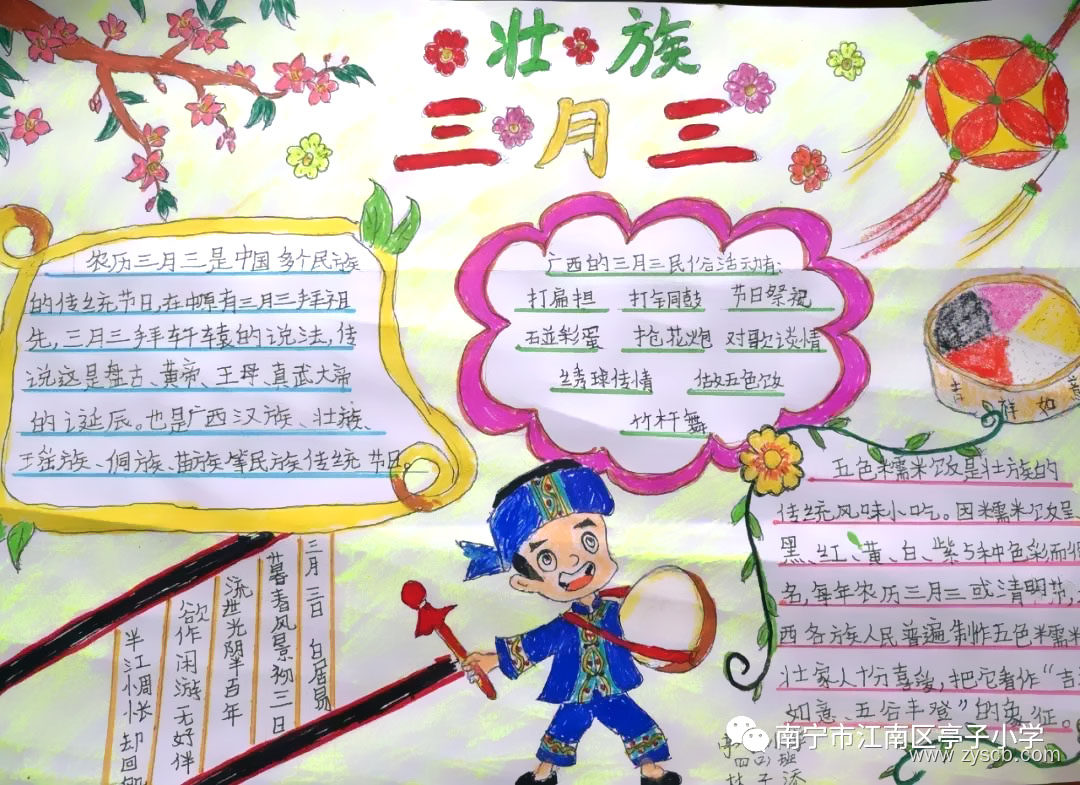 壮族
三月三
农历三月三,是中国多个民族
的传统节日,在中原有三月三拜祖
先,三月三拜轩辕的说法,传
说这是盘古、黄帝、王母、真武大帝
的诞辰。也是广西汉族、壮族、
瑶族、侗族、苗族等民族传统节日。
广西的三月三民俗活动有:
打扁担 打铜鼓 节日祭祝
碰彩蛋 抢花炮 对歌谈情
绣球传情 做五色饭
竹杆舞
吉祥如意
五色糯米饭是壮族的
传统风味小吃。因糯米饭呈
黑、红、黄、白、紫5种色彩而得
名,每年农历三月三或清明节,
西各族人民普遍制作五色糯米
壮家人十分喜爱,把它看作“吉
如意、五谷丰登”的象征。
三月三日 白居易
暮春风景初三日
流世光阴半百年
欲作闲游无好伴
半江惆怅却回
四(2)班
南宁市江南区亭子小学
www.zyscb.com